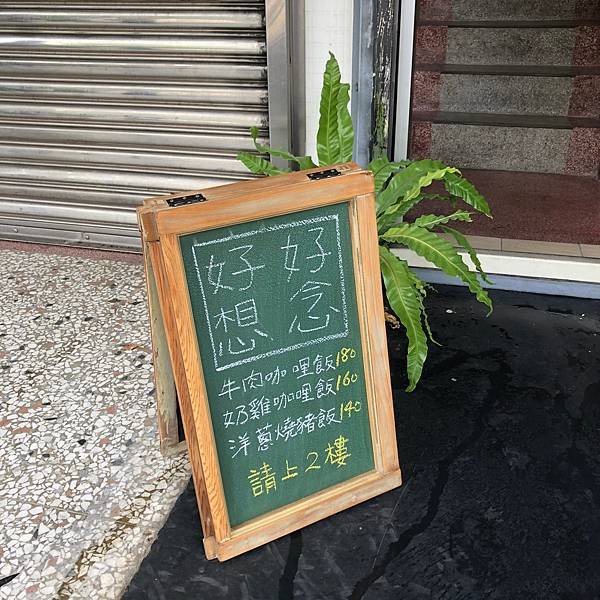 好想
好念
牛肉咖哩飯180
奶雞咖哩飯160
洋蔥燒豬飯140
請上2樓